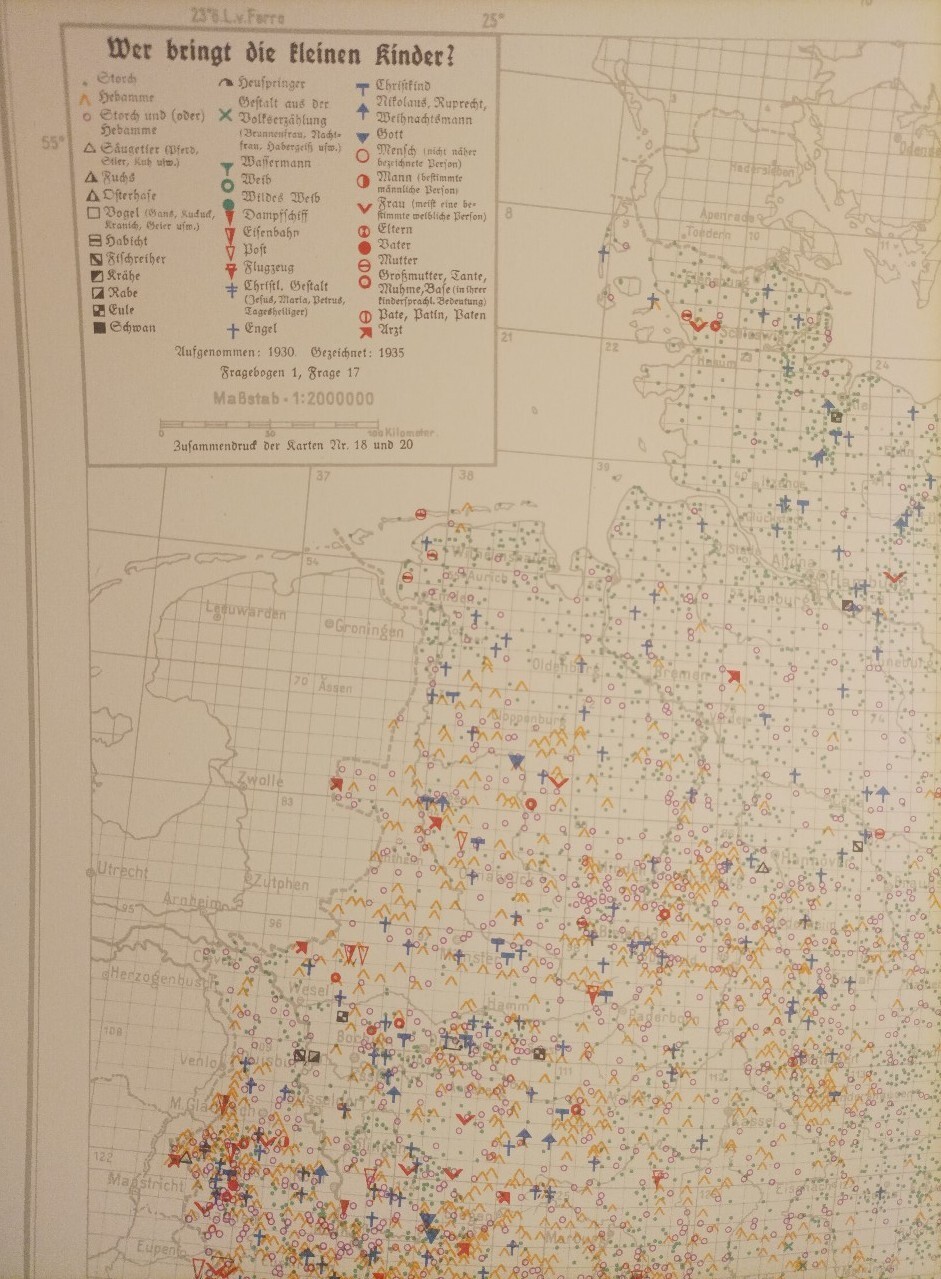 23° ö.L.v.Ferro
25°
Wer bringt die kleinen Kinder?
Storch
Hebamme
Storch und (oder)
Hebamme
Säugetier (Pferd,
Stier, Kuh usw.)
Fuchs
Osterhase
Vogel (Gans, Kuckuck,
Kranich, Geier usw.)
Habicht
Fischreiher
Krähe
Rabe
Eule
Schwan
Heuspringer
Gestalt aus der
Volkserzählung
(Brunnenfrau, Nacht=
frau, Habergeiß usw.)
Wassermann
Weib
Wildes Weib
Dampfschiff
Eisenbahn
Post
Flugzeug
Christl. Gestalt
(Jesus, Maria, Petrus,
Tagesheiliger)
Engel
Christkind
Nikolaus, Ruprecht,
Weihnachtsmann
Gott
Mensch (nicht näher
bezeichnete Person)
Mann (bestimmte
männliche Person)
Frau (meist eine be=
stimmte weibliche Person)
Eltern
Vater
Mutter
Großmutter, Tante,
Muhme, Base (in ihrer
kindersprachl. Bedeutung)
Pate, Patin, Paten
Arzt
Aufgenommen: 1930 Gezeichnet: 1935
Fragebogen 1, Frage 17
Maßstab · 1:2000000
0 50 100 Kilometer
Zusammendruck der Karten Nr. 18 und 20
55°
3
4
Hadersleben
Odense
8
9
Apenrade
Tondern
10
11
21
22
Schleswig
Husum
23
24
37
38
39
54
Aurich
Emden
Hamburg
Harburg
Leeuwarden
Groningen
Oldenburg
Bremen
Lüneburg
70
Assen
Kloppenburg
74
Zwolle
83
Hannover
Utrecht
Zutphen
Arnheim
95
96
Münster
Herzogenbusch
Wesel
Hamm
Paderborn
108
Venlo
111
112
M.Gladbach
Kassel
122
Maastricht
Marburg
Eupen